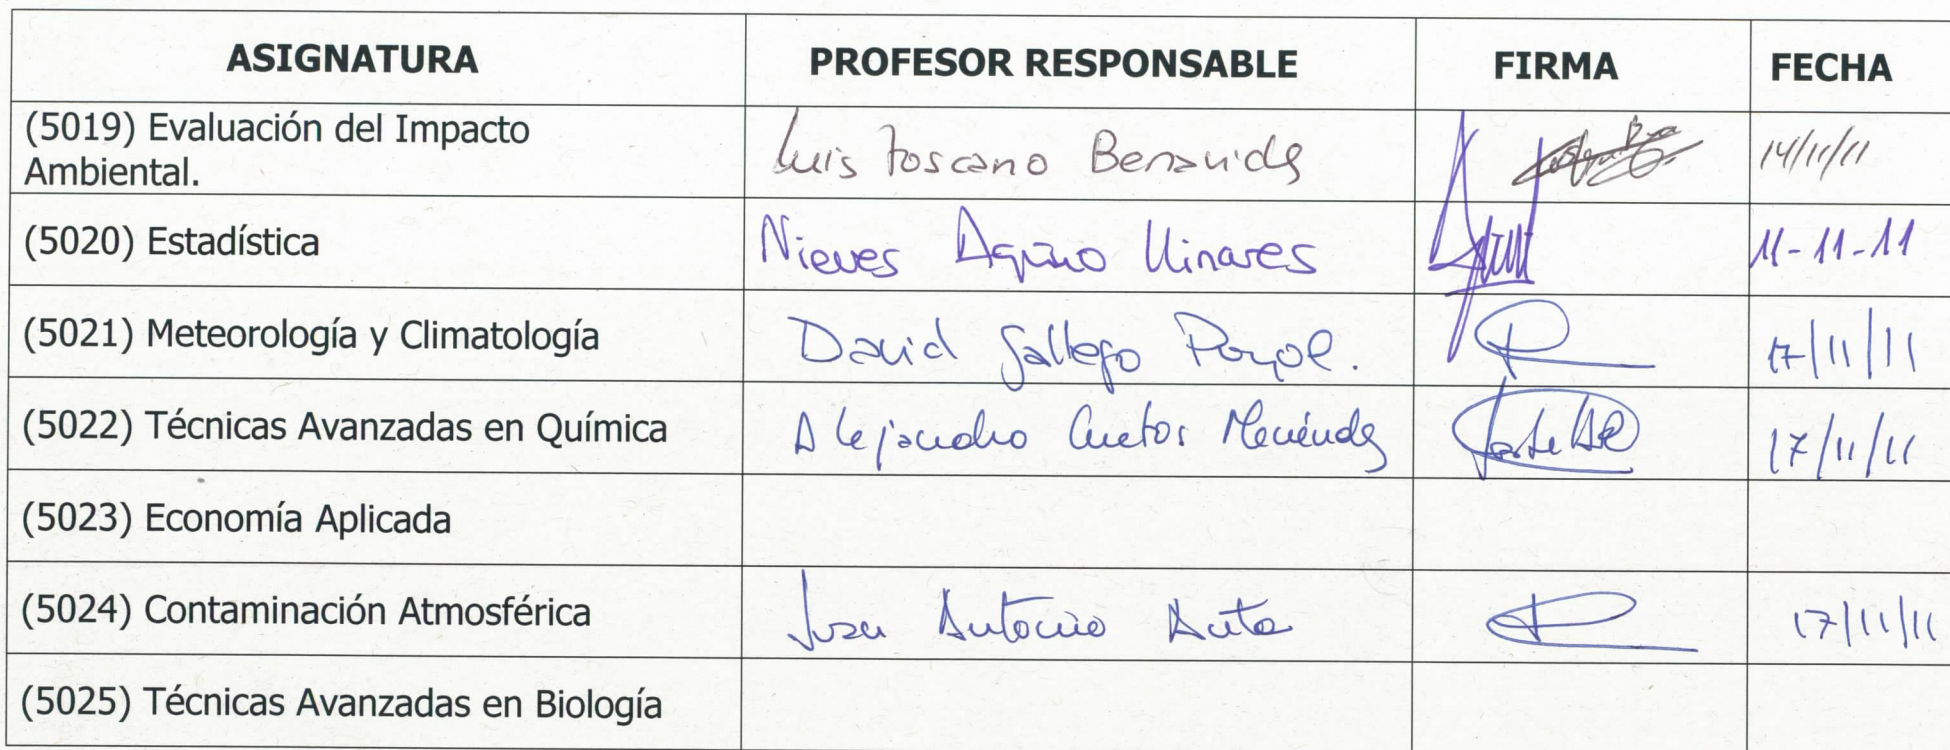 ASIGNATURA PROFESOR RESPONSABLE FIRMA FECHA
(5019) Evaluación del Impacto
Ambiental. Luis Toscano Benavides 14/11/11
(5020) Estadística Nieves Aquino Llinares 11-11-11
(5021) Meteorología y Climatología David Gallego Puyol. 17/11/11
(5022) Técnicas Avanzadas en Química Alejandro Cuetos Menéndez 17/11/11
(5023) Economía Aplicada
(5024) Contaminación Atmosférica Juan Antonio Anta 17/11/11
(5025) Técnicas Avanzadas en Biología